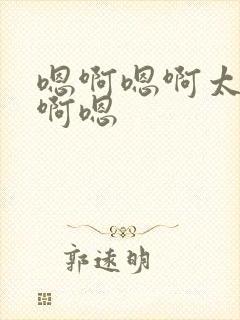 嗯啊嗯啊太
啊嗯
郭逺明